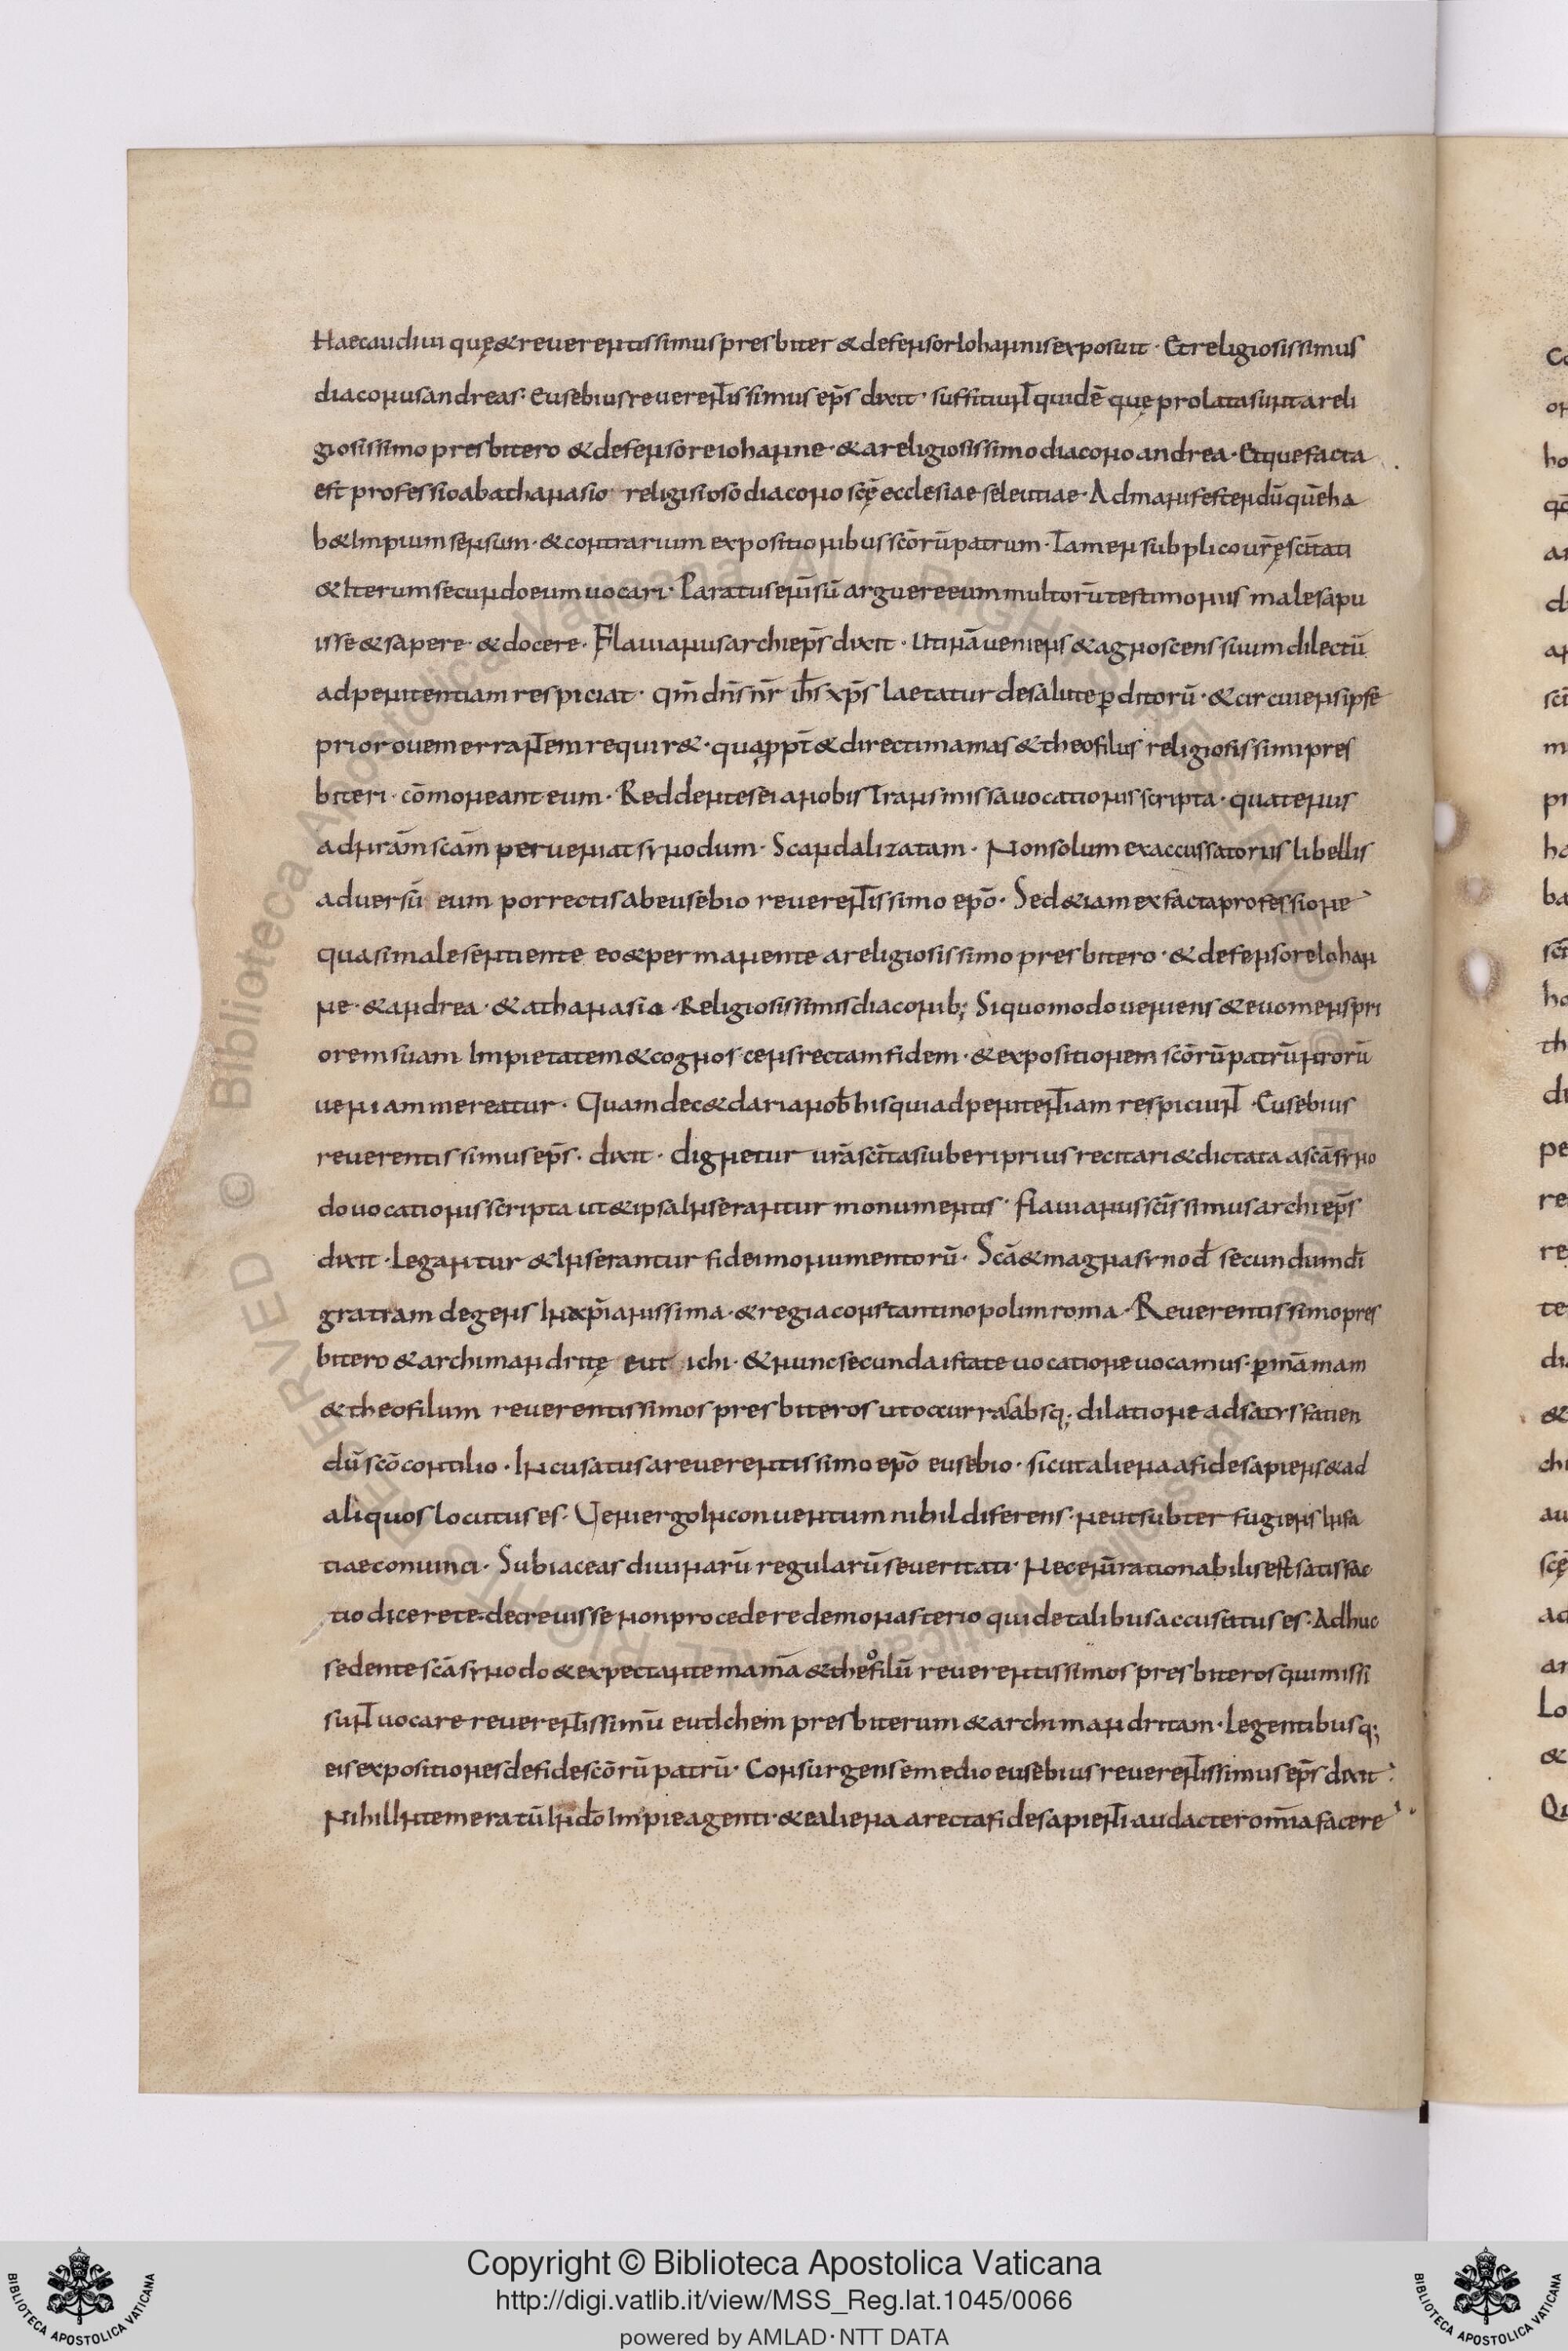 Haec audiui quę & reuerentissimus presbiter & defensor Iohannis exposuit · Et religiosissimus
diaconus andreas · Eusebius reuerentissimus ep̄s dixit · sufficiunt quidē quę prolata sunt a reli
giosissimo presbitero & defensore iohanne · & a religiosissimo diacono andrea · Et que facta
est professio ab athanasio religisioso diacono scę̄ ecclesiae seleuciae · Ad manifestendū quē ha
b& Impium sensum · & contrarium expositionibus scōrū patrum · Tamen subplico ur̄ę sc̄itati
& Iterum secundo eum uocari · Paratus eni̅ sū arguere eum multorū testimoniis male sapu
isse & sapere · & docere · Flauianus archiep̄s dixit · Utināueniens & agnoscens suum dilectū
ad penitentiam respiciat · qm̄ dn̄s nr̄ ih̄s xp̄s laetatur de salute ꝑditorū · & circuiens ipse
prior ouem errantem requir& · quapp̄t & directi mamas & theofilus religiosissimi pres
biteri · cōmoneant eum · Reddentes ei a nobis transmissa uocationis scripta · quatenus
ad nr̄ām scām perueniat synodum · Scandalizatam · Non solum ex accussatoriis libellis
aduersū eum porrectis ab eusebio reuerentissimo epō · Sed & iam ex facta professione
quasi male sentiente eo & permanente a religiosissimo presbitero · & defensore Iohan
ne · & andrea · & athanasio · Religiosissimis diaconib; Si quomodo ueniens & euomens pri
orem suam Impietatem & cognoscens rectam fidem · & expositionem scōrū patrū nr̄orū
ueniam mereatur · Quam dec& dari a nob̄ his qui ad penitentiam respiciunt · Eusebius
reuerentissimus ep̄s · dixit · dignetur ur̄ā sc̄itas iuberi prius recitari & dictata a scā syno
do uocationis scripta ut & ipsa Inserantur monumentis · flauianus sc̄issimus archiep̄s
dixit · Legantur & Inserantur fidei monumentorū · Scā & magna synod̄ secundum dī
gratiam degens In xp̄ianissima · & regia constantinopolim roma · Reuerentissimo pres
bitero & archimandritę eut ichi · & nunc secunda istate uocatione uocamus · ꝑ mām̄am
& theofilum reuerentissimos presbiteros ut occurras absq; dilatione ad satysfacien
dū scō concilio · Incusatus a reuerentissimo epō eusebio · sicut aliena a fide sapiens & ad
aliquos locutus es · Ueni ergo In conuentum nihil diferens · ne ut subterfugiens Insa
tiae conuinci · Subiaceas diuinarū regularū seueritati · Nec eni̅ rationabilis est satisfac
tio dicere te decreuisse non procedere de monasterio qui de talibus accusatus es · Adhuc
sedente scā synodo & expectante mamā & theofilū reuerentissimos presbiteros qui missi
sunt uocare reuerentissimū eutichem presbiterum & archimandritam · Legentibusq;
eis expositiones de fide scōrū patrū · Consurgens e medio eusebius reuerentissimus ep̄s dixit ·
Nihil Intemeratū linquendo Impie agenti · & ea aliena a recta fide sapienti audacter omīa facere
Copyright © Biblioteca Apostolica Vaticana
http://digi.vatlib.it/view/MSS_Reg.lat.1045/0066
powered by AMLAD·NTT DATA